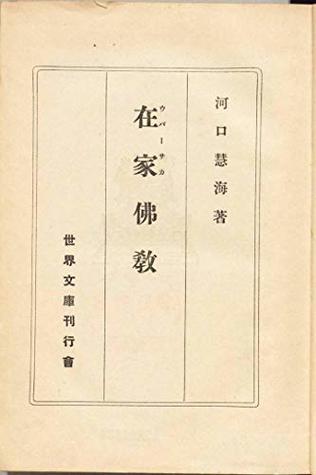 河口慧海著
ウパーサカ
在家佛教
世界文庫刊行會